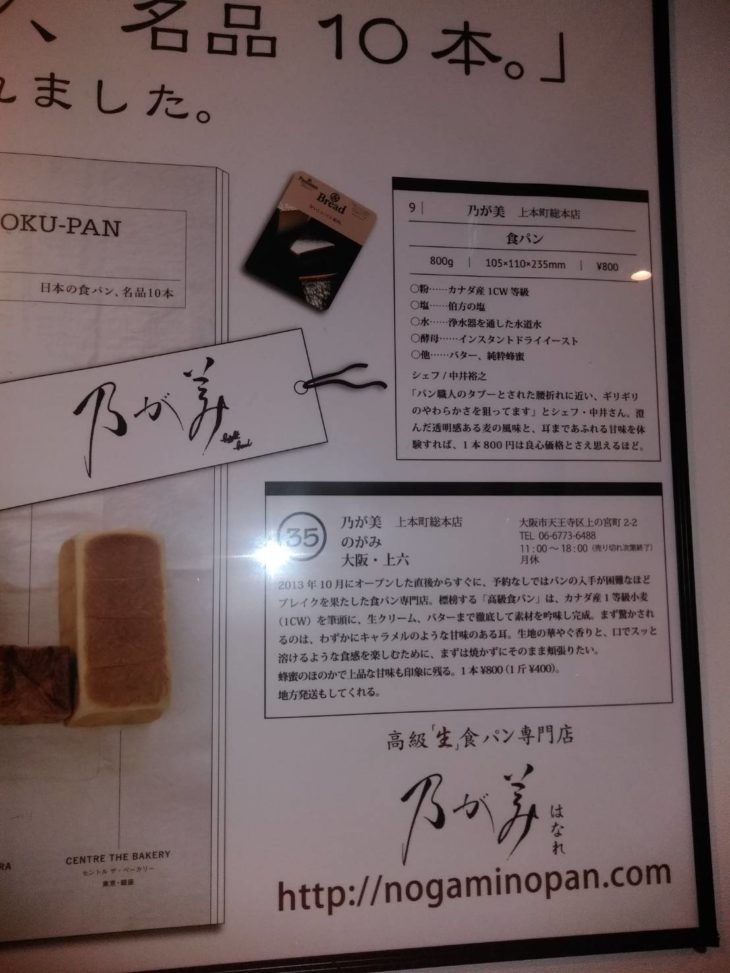 、名品10本。」
れました。
OKU-PAN
日本の食パン、名品10本
Bread
乃が美
9 | 乃が美 上本町総本店
食パン
800g | 105×110×235mm | ¥800
○粉……カナダ産1CW等級
○塩……伯方の塩
○水……浄水器を通した水道水
○酵母……インスタントドライイースト
○他……バター、純粋蜂蜜
シェフ/中井裕之
「パン職人のタブーとされた腰折れに近い、ギリギリ
のやわらかさを狙ってます」とシェフ・中井さん。澄
んだ透明感ある麦の風味と、耳まであふれる甘味を体
験すれば、1本800円は良心価格とさえ思えるほど。
35
乃が美 上本町総本店
のがみ
大阪・上六
大阪市天王寺区上の宮町2-2
TEL 06-6773-6488
11:00〜18:00(売り切れ次第終了)
月休
2013年10月にオープンした直後からすぐに、予約なしではパンの入手が困難なほど
ブレイクを果たした食パン専門店。標榜する「高級食パン」は、カナダ産1等級小麦
(1CW)を筆頭に、生クリーム、バターまで徹底して素材を吟味し完成。まず驚かされ
るのは、わずかにキャラメルのような甘味のある耳。生地の華やぐ香りと、口でスッと
溶けるような食感を楽しむために、まずは焼かずにそのまま頬張りたい。
蜂蜜のほのかで上品な甘味も印象に残る。1本¥800(1斤¥400)。
地方発送もしてくれる。
高級「生」食パン専門店
乃が美 はなれ
http://nogaminopan.com
RA
CENTRE THE BAKERY
セントル ザ・ベーカリー
東京・銀座